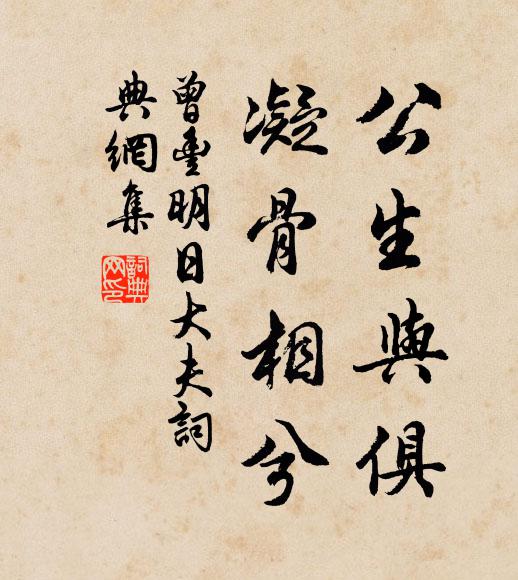 公生與俱
凝骨相兮
曾豐明日大夫詞
典網集
詞典網印